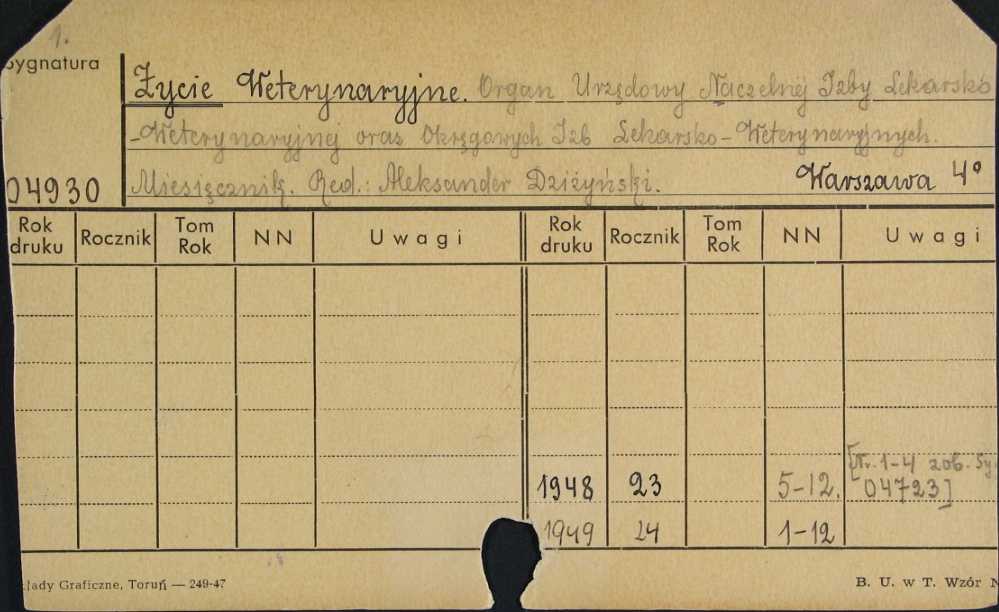 1.
Sygnatura
Życie Weterynaryjne. Organ Urzędowy Naczelnej Izby Lekarsko
-Weterynaryjnej oraz Okręgowych Izb Lekarsko-Weterynaryjnych.
04930 Miesięcznik. Red.: Aleksander Dziżyński. Warszawa 4°
Rok druku Rocznik Tom Rok NN Uwagi Rok druku Rocznik Tom Rok NN Uwagi
[Nr. 1-4 zob. Sy
1948 23 5-12. 04723]
1949 24 1-12
kłady Graficzne, Toruń — 249-47 B. U. w T. Wzór N